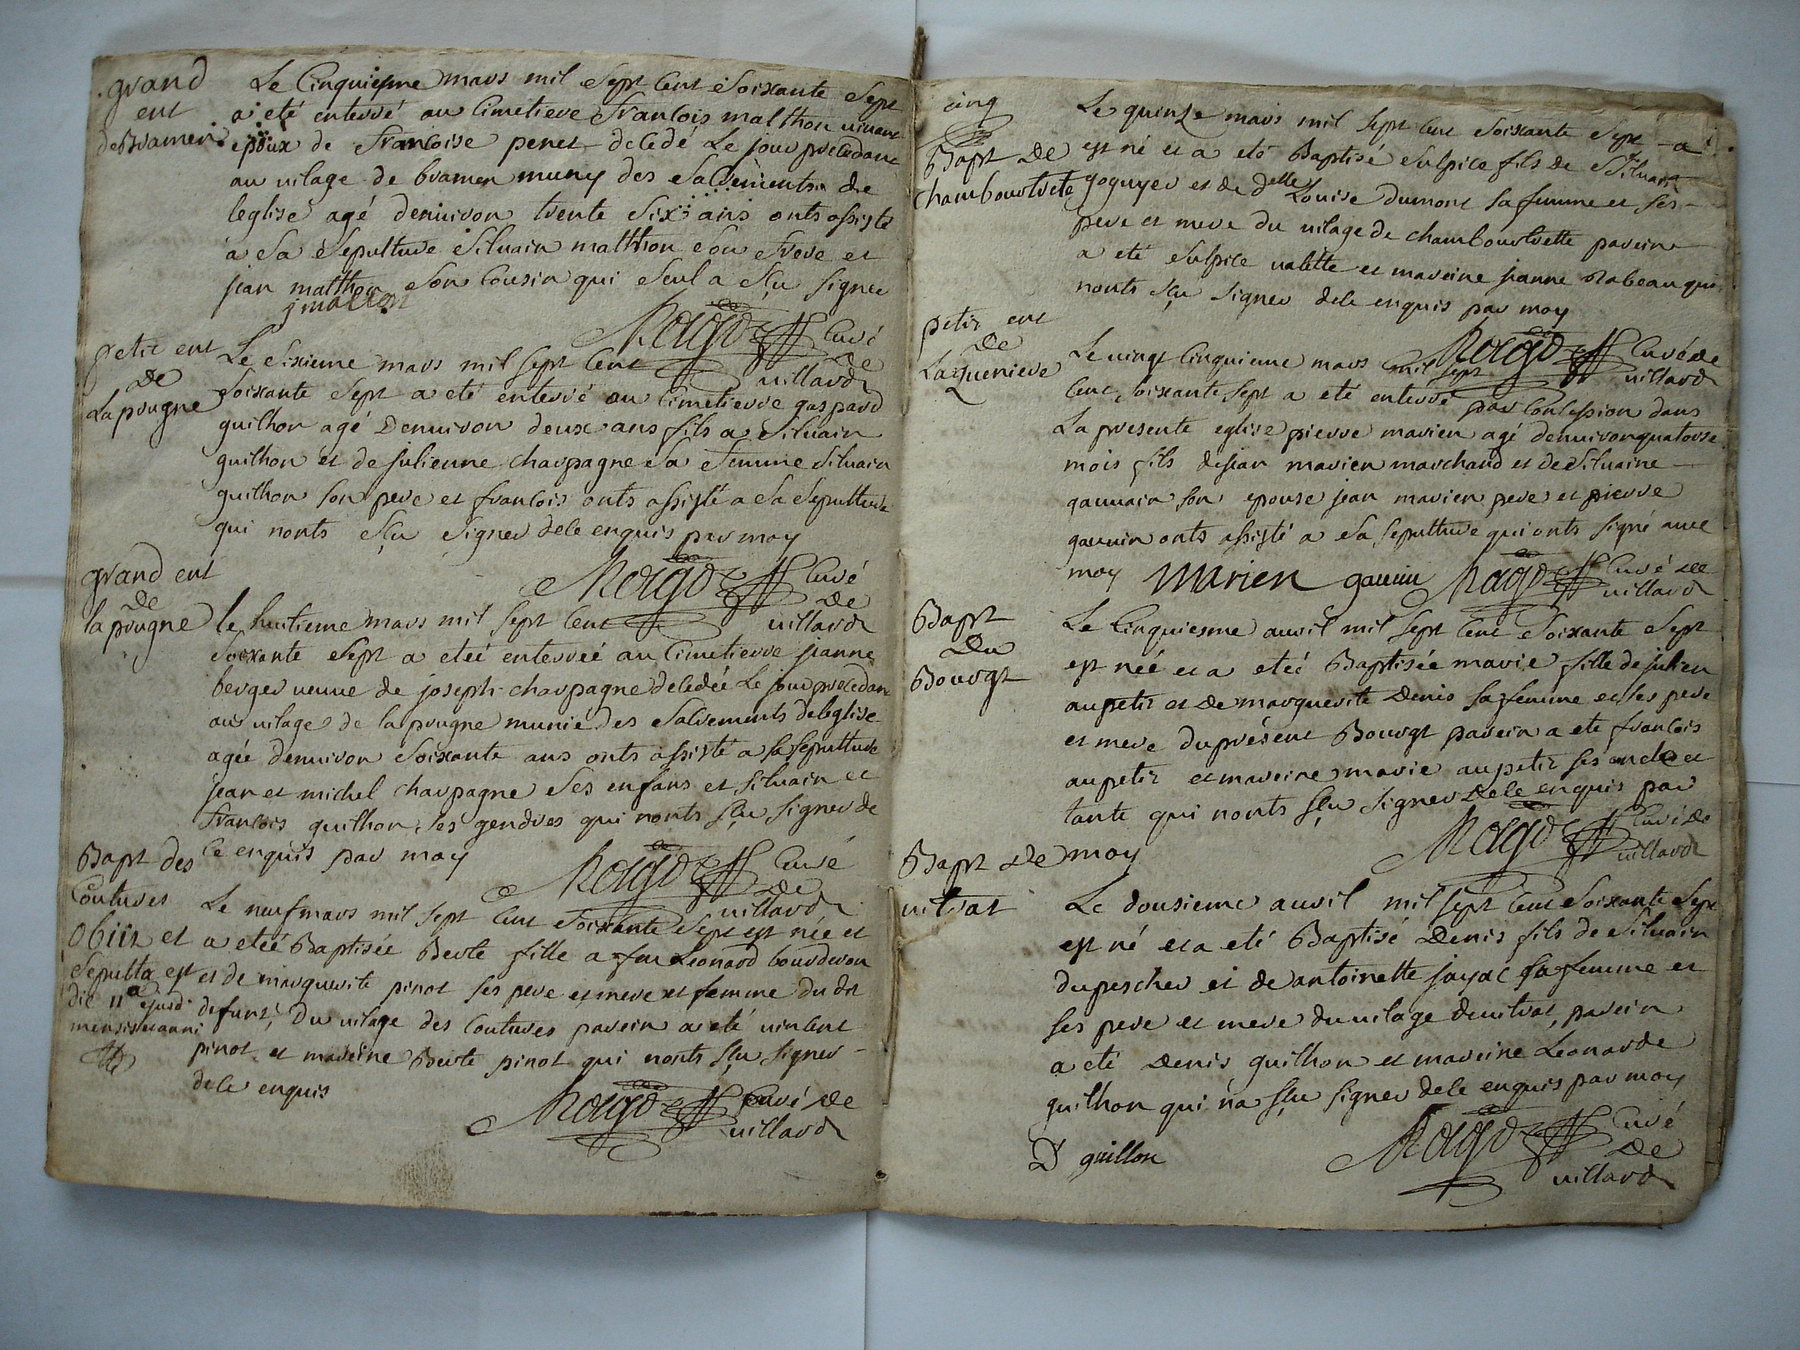 grand
ent
de Bramen
Le Cinquiesme mars mil Sept Cent Soixante Sept
a eté enterré au Cimetiere Francois malthon vivant
epoux de Francoise peret decedé Le jour precedant
au vilage de bramen muny des Salvements de
leglise agé denviron trente Six ans onts assisté
a Sa Sepulture Silvain malthon Son frere et
jean malthon Son Cousin qui Seul a Sçu Signer
jmalton
Curé
de
villard
petit ent
de
La pougne
Le Sixieme mars mil Sept Cent
Soixante Sept a eté enterré au Cimetierre gaspard
guilhon agé denviron deux ans fils a Silvain
guilhon et de julienne charpagne Sa femme Silvain
guilhon Son pere et francois onts assisté a Sa Sepulture
qui nonts Sçu Signer dele enquis par moy
Curé
de
villard
grand ent
de
la pougne
le huitieme mars mil Sept Cent
Soixante Sept a eteé enterreé au Cimetierre jeanne
berger veuve de joseph charpagne decedée Le jour precedant
au vilage de la pougne munie des Salvements deleglise
agée denviron Soixante ans onts assisté a Sa Sepulture
jean et michel charpagne Ses enfans et Silvain et
francois guilhon Ses gendres qui nonts Sçu Signer de
Ce enquis par moy
Curé
de
villard
Bapt des
Coutures
Obiit et
Sepulta est
die 11a ejusd
mensis et anni
Le neuf mars mil Sept Cent Soixante Sept est née et
a eteé Baptisée Berte fille a feu Leonard bourderon
et de marguerite pinot Ses pere et mere et femme du dit
defunt, Du vilage des Coutures parein a eté vincent
pinot et mareine Berte pinot qui nonts Sçu Signer
dele enquis
Curé de
villard
cinq
Bapt de
chambourtvette
Le quinze mars mil Sept Cent Soixante Sept a
est né et a eté Baptisé Sulpice fils de Silvain
goguyer et de delle Louise dumont Sa femme et Ses
pere et mere du vilage de chambourtvette parein
a eté Sulpice valette et mareine jeanne Rabeau qui
nonts Sçu Signer dele enquis par moy
Curé de
villard
petit ent
de
La queniere
Le vingt Cinquieme mars mil Sept
Cent Soixante Sept a eté enterré par Concession dans
La presente eglise pierre marien agé denviron quatorse
mois fils de jean marien marchand et de Silvaine
gauvain Son epouse jean marien pere et pierre
gauvin onts assisté a Sa Sepulture qui onts Signé avec
moy Marien gauvin
Curé de
villard
Bapt
Du
Bourgt
Le Cinquiesme avril mil Sept Cent Soixante Sept
est née et a eteé Baptisée marie fille de julien
aupetit et de marguerite Denis Sa femme et Ses pere
et mere du présent Bourgt parein a eté francois
aupetit et mareine marie aupetit Ses oncle et
tante qui nonts Sçu Signer De Ce enquis par
moy
Curé de
villard
Bapt de
vitrat
Le dousieme avril mil Sept Cent Soixante Sept
est né et a eté Baptisé Denis fils de Silvain
dupescher et de antoinette jayac Sa femme et
Ses pere et mere du vilage de vitrat, parein
a eté Denis guilhon et mareine Leonarde
guilhon qui na Sçu Signer dele enquis par moy
D guillon
Curé
de
villard